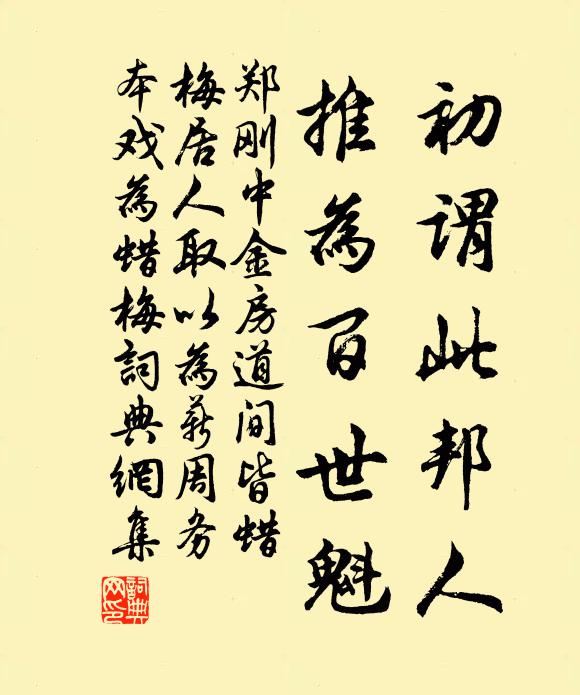 初谓此邦人
推為百世魁
郑刚中金房道间皆蜡
梅居人取以為薪周务
本戏為蜡梅詞典網集
詞典
网印